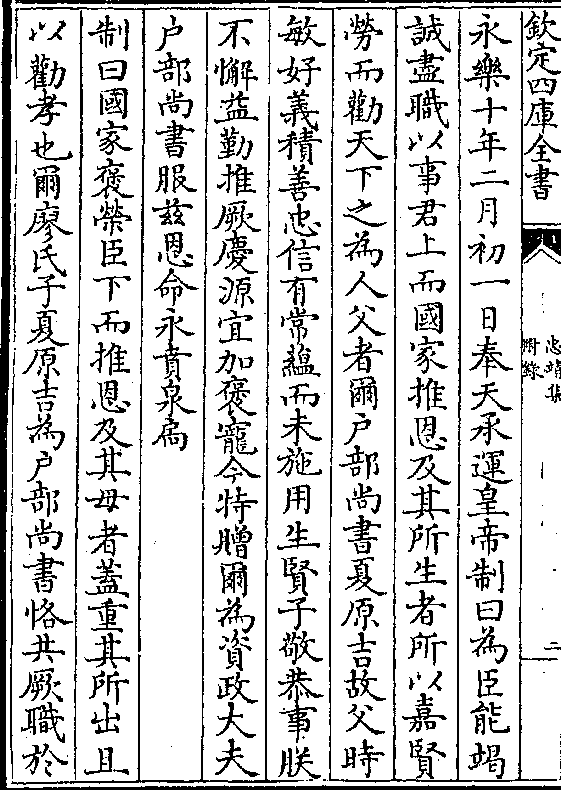 欽定四庫全書
忠靖集
附錄
二
永樂十年二月初一日奉天承運皇帝制曰為臣能竭
誠盡職以事君上而國家推恩及其所生者所以嘉賢
勞而勸天下之為人父者爾户部尚書夏原吉故父時
敏好義積善忠信有常蘊而未施用生賢子敬恭事朕
不懈益勤推厥慶源宜加褒寵今特贈爾為資政大夫
户部尚書服兹恩命永賁泉扄
制曰國家褒榮臣下而推恩及其母者蓋重其所出且
以勸孝也爾廖氏子夏原吉為户部尚書恪共厥職於